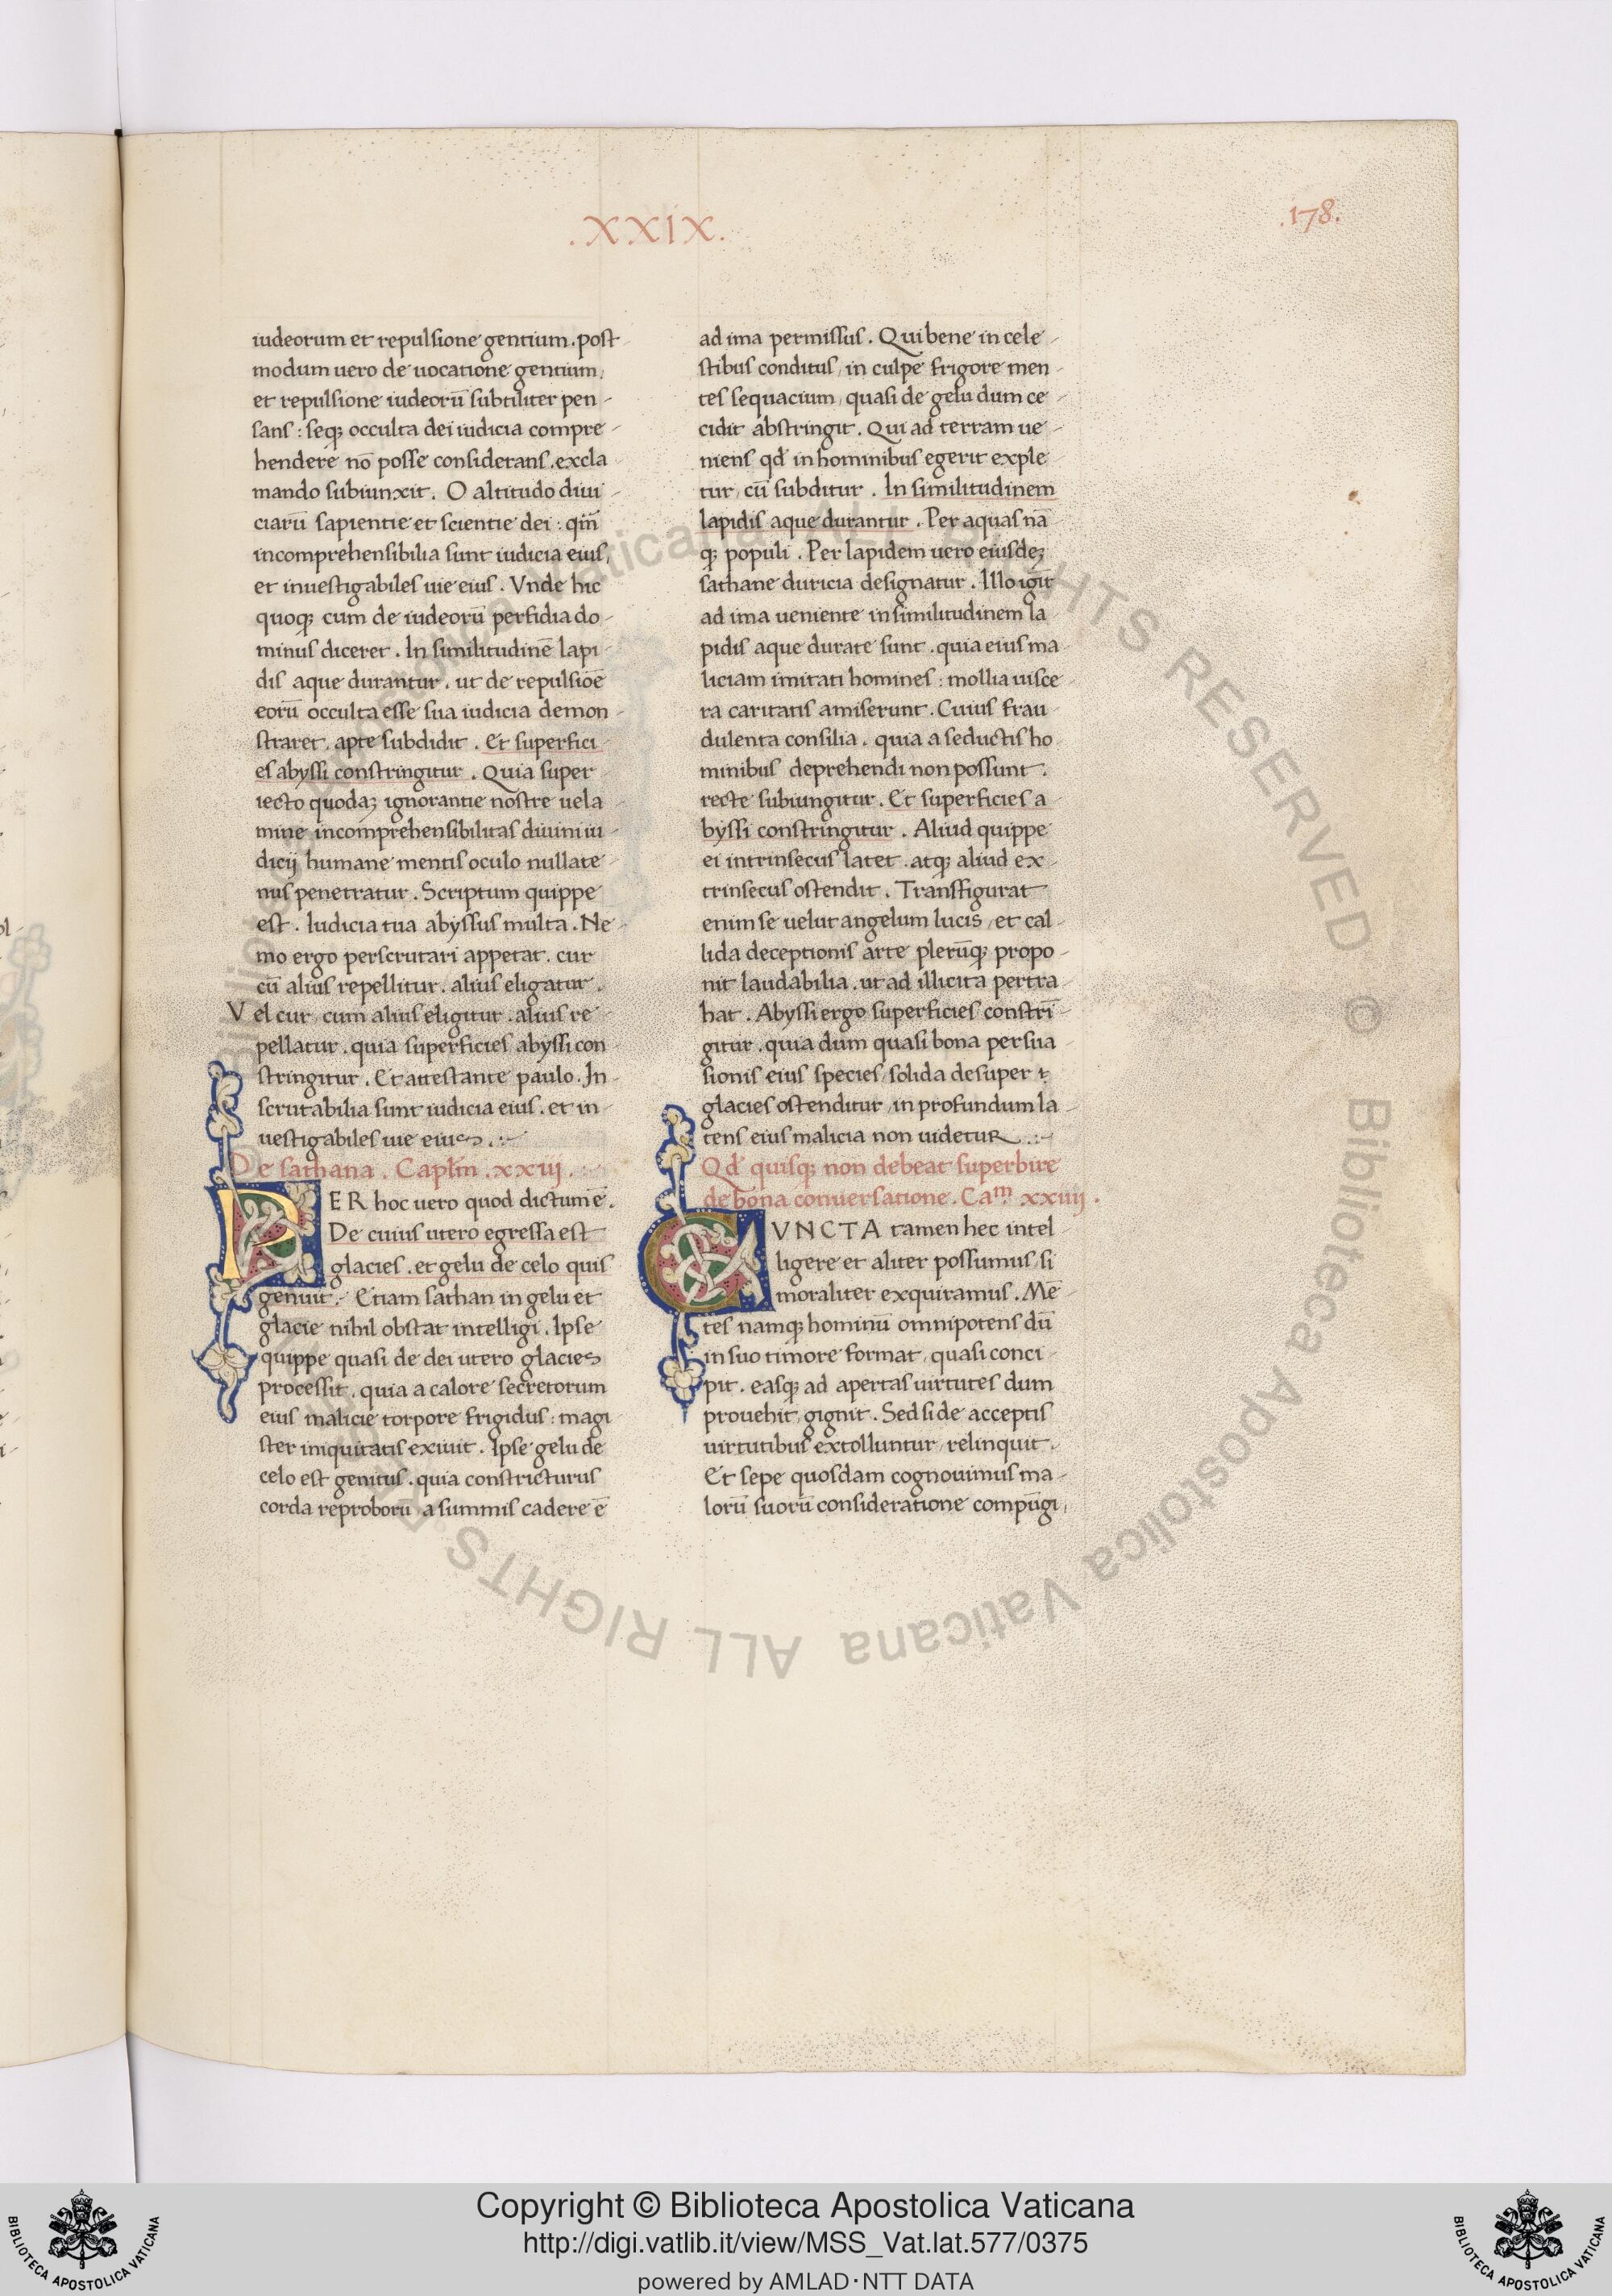 .XXIX.
.178.
iudeorum et repulsione gentium. post
modum uero de uocatione gentium,
et repulsione iudeorū subtiliter pen-
sans: seq; occulta dei iudicia compre-
hendere nō posse considerans. excla
mando subiunxit. O altitudo diui-
ciarū sapientie et scientie dei: qm̄
incomprehensibilia sunt iudicia eius,
et inuestigabiles uie eius. Vnde hic
quoq; cum de iudeorū perfidia do-
minus diceret. In similitudinē lapi-
dis aque durantur. ut de repulsiōe
eorū occulta esse sua iudicia demon-
straret. apte subdidit. Et superfici
es abyssi constringitur. Quia super
iecto quodaȝ ignorantie nostre uela
mine incomprehensibilitas diuini iu-
dicij humane mentis oculo nullate-
nus penetratur. Scriptum quippe
est. Iudicia tua abyssus multa. Ne-
mo ergo perscrutari appetat. cur
cū alius repellitur. alius eligatur.
Vel cur, cum alius eligitur. alius re-
pellatur. quia superficies abyssi con
stringitur. Et attestante paulo. In-
scrutabilia sunt iudicia eius. et in-
uestigabiles uie eius.:-
De sathana. Capl̄m .xxiij.
PER hoc uero quod dictum ē.
De cuius utero egressa est
glacies. et gelu de celo quis
genuit. Etiam sathan in gelu et
glacie nihil obstat intelligi. Ipse
quippe quasi de dei utero glacies
processit. quia a calore secretorum
eius malicie torpore frigidus: magi
ster iniquitatis exiuit. Ipse gelu de
celo est genitus. quia constricturus
corda reproborū a summis cadere ē
ad ima permissus. Qui bene in cele-
stibus conditus, in culpe frigore men-
tes sequacium, quasi de gelu dum ce-
cidit abstringit. Qui ad terram ue-
niens qd̄ in hominibus egerit exple-
tur, cū subditur. In similitudinem
lapidis aque durantur. Per aquas nā
q; populi. Per lapidem uero eiusdeȝ
sathane duricia designatur. Illo igit̄
ad ima ueniente in similitudinem la
pidis aque durate sunt. quia eius ma
liciam imitati homines: mollia uisce
ra caritatis amiserunt. Cuius frau-
dulenta consilia. quia a seductis ho
minibus deprehendi non possunt.
recte subiungitur. Et superficies a
byssi constringitur. Aliud quippe
ei intrinsecus latet. atq; aliud ex-
trinsecus ostendit. Transfigurat
enim se uelut angelum lucis, et cal-
lida deceptionis arte plerūq; propo-
nit laudabilia. ut ad illicita pertra
hat. Abyssi ergo superficies constrī-
gitur. quia dum quasi bona persua-
sionis eius species, solida desuper
glacies ostenditur, in profundum la-
tens eius malicia non uidetur.:-
Qd̄ quisq; non debeat superbire
de bona conuersatione. Caᵐ xxiiij.
CVNCTA tamen hec intel-
ligere et aliter possumus, si
moraliter exquiramus. Mē-
tes namq; hominū omnipotens dū
in suo timore format, quasi conci-
pit. easq; ad apertas uirtutes dum
prouehit, gignit. Sed si de acceptis
uirtutibus extolluntur, relinquit.
Et sepe quosdam cognouimus ma-
lorū suorū consideratione compūgi,
Biblioteca Apostolica Vaticana ALL RIGHTS RESERVED ©
Biblioteca Apostolica Vaticana ALL RIGHTS
Copyright © Biblioteca Apostolica Vaticana
http://digi.vatlib.it/view/MSS_Vat.lat.577/0375
powered by AMLAD·NTT DATA
BIBLIOTECA APOSTOLICA VATICANA
BIBLIOTECA APOSTOLICA VATICANA